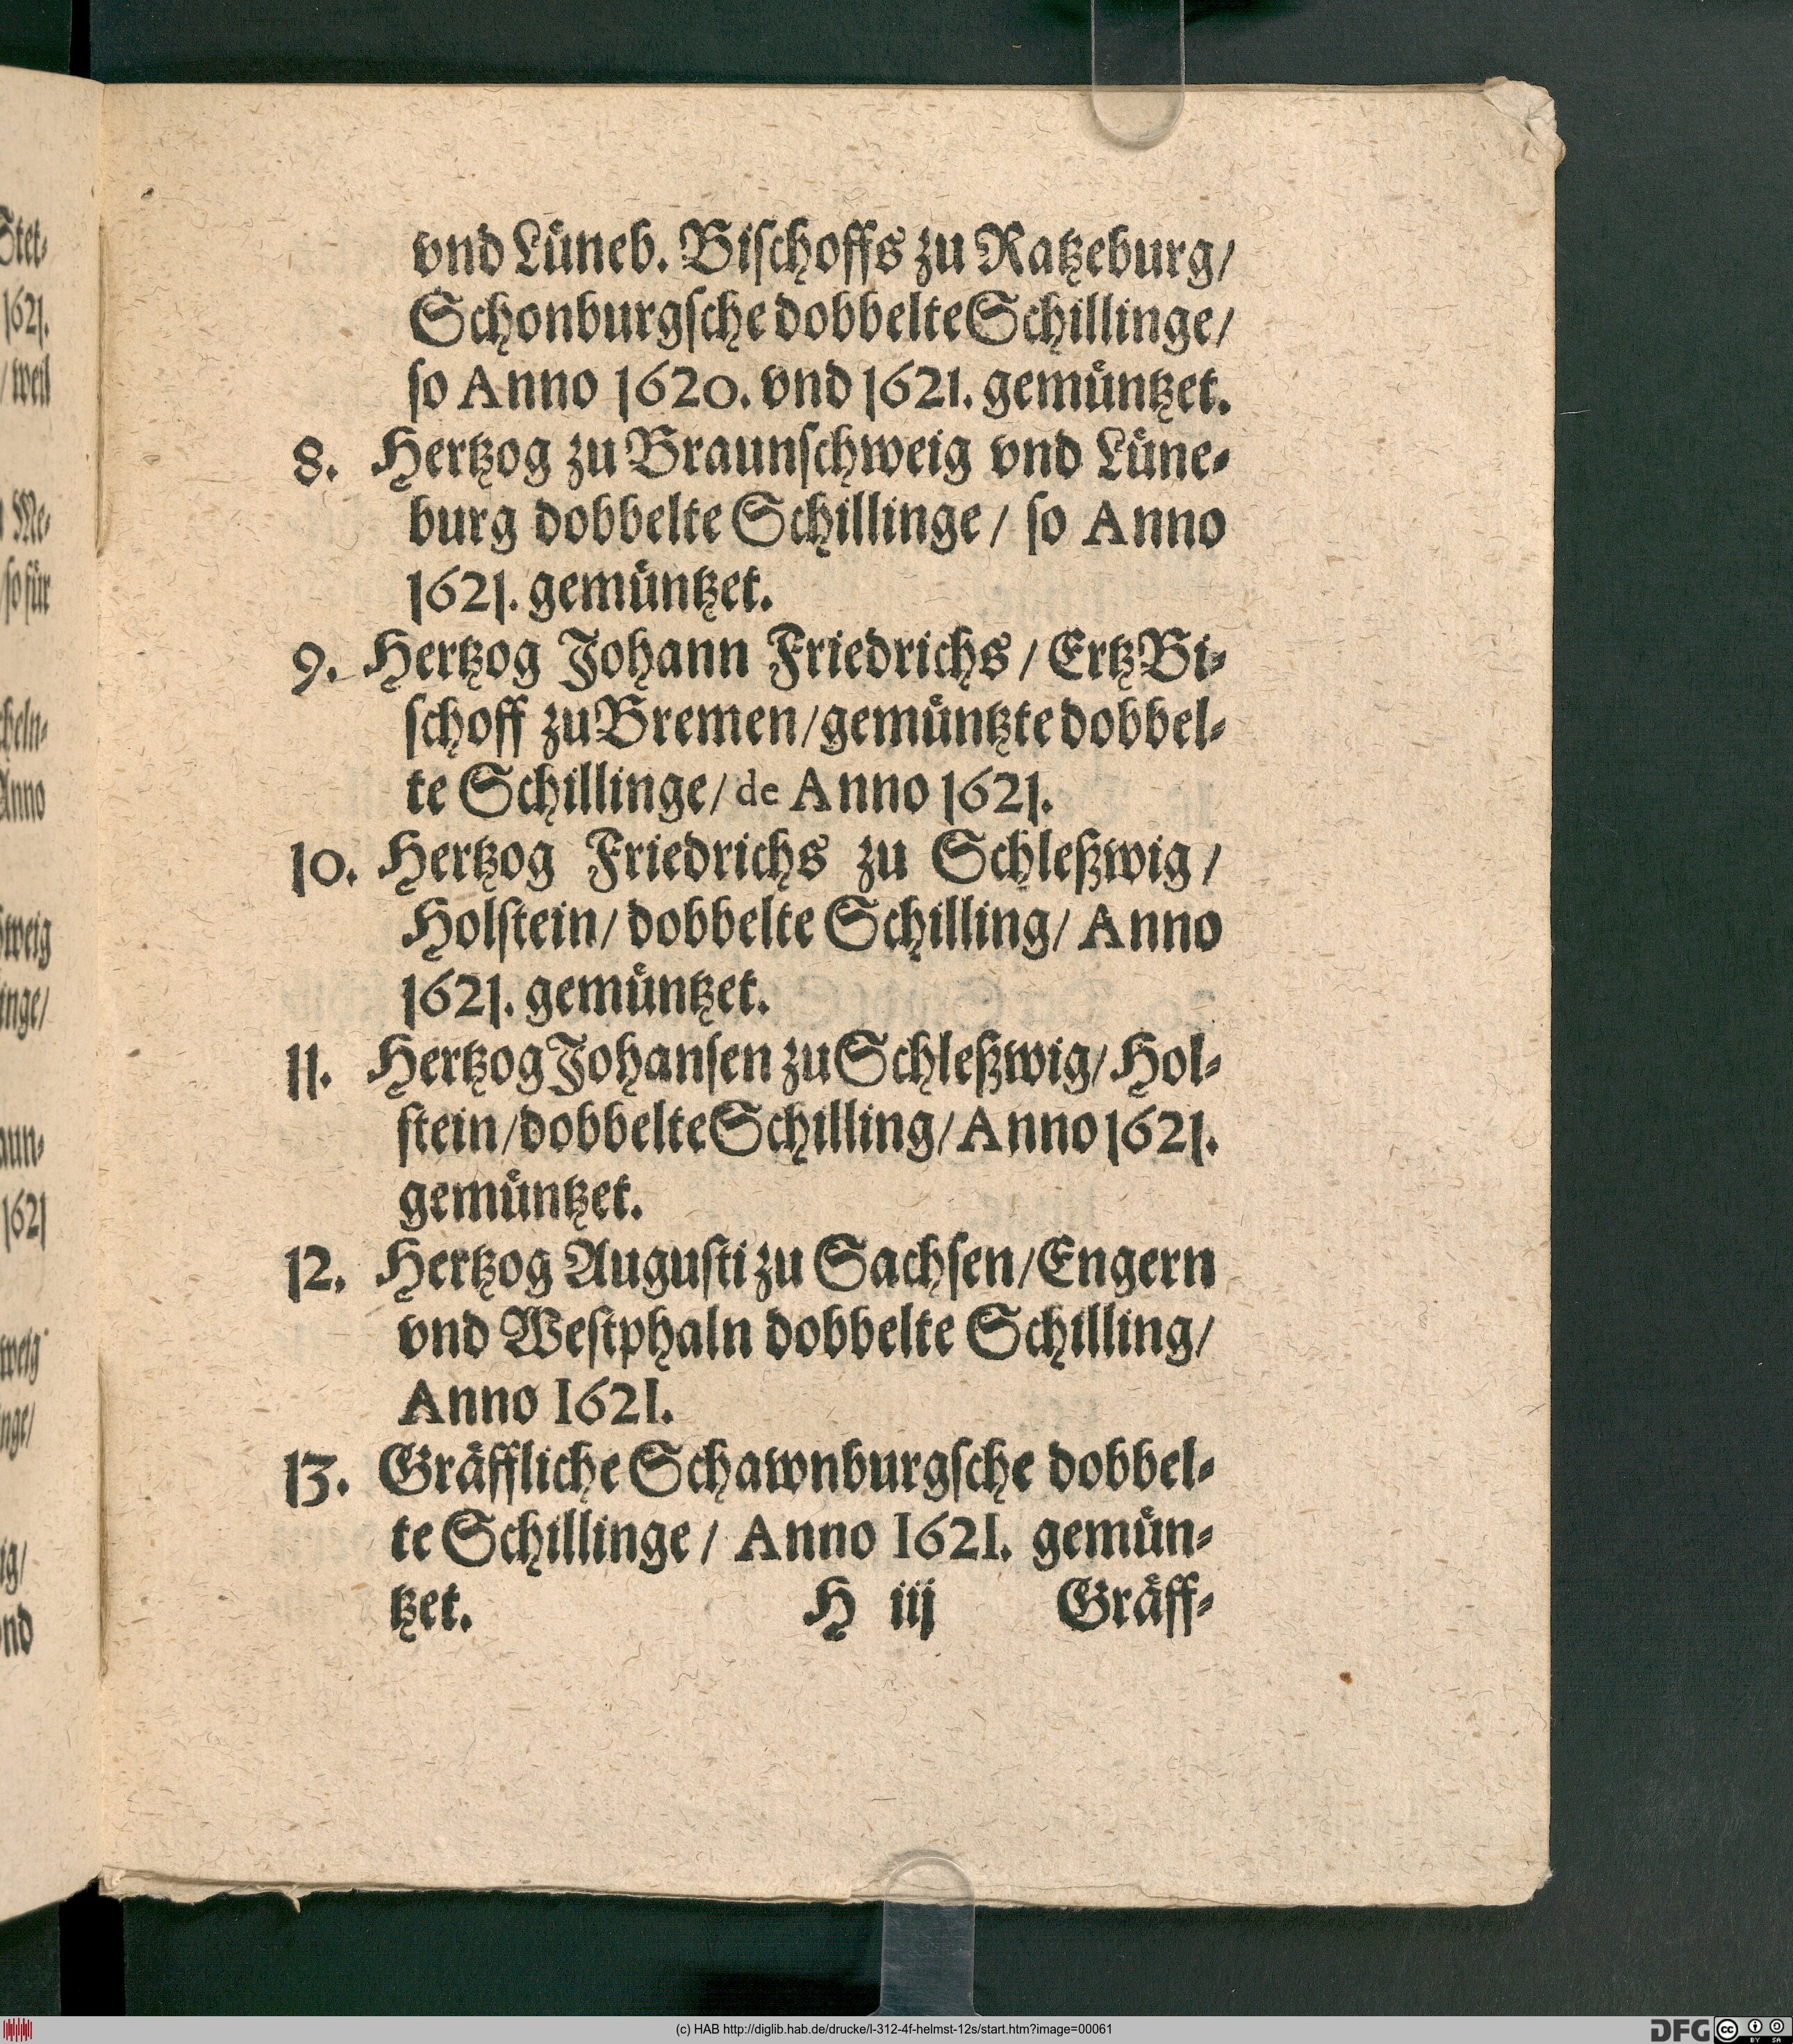 vnd Lüneb. Biſchoffs zu Ratzeburg/
Schonburgſche dobbelte Schillinge/
ſo Anno 1620. vnd 1621. gemüntzet.
8. Hertzog zu Braunſchweig vnd Lüne-
burg dobbelte Schillinge/ ſo Anno
1621. gemüntzet.
9. Hertzog Johann Friedrichs/ ErtzBi-
ſchoff zu Bremen/gemüntzte dobbel-
te Schillinge/ de Anno 1621.
10. Hertzog Friedrichs zu Schleßwig/
Holſtein/ dobbelte Schilling/ Anno
1621. gemüntzet.
11. Hertzog Johanſen zu Schleßwig/ Hol-
ſtein/dobbelte Schilling/Anno 1621.
gemüntzet.
12. Hertzog Auguſti zu Sachſen/Engern
vnd Weſtphaln dobbelte Schilling/
Anno 1621.
13. Gräffliche Schawnburgſche dobbel-
te Schillinge/ Anno 1621. gemün-
tzet. H iij Gräff-
(c) HAB http://diglib.hab.de/drucke/l-312-4f-helmst-12s/start.htm?image=00061
DFG
cc BY SA